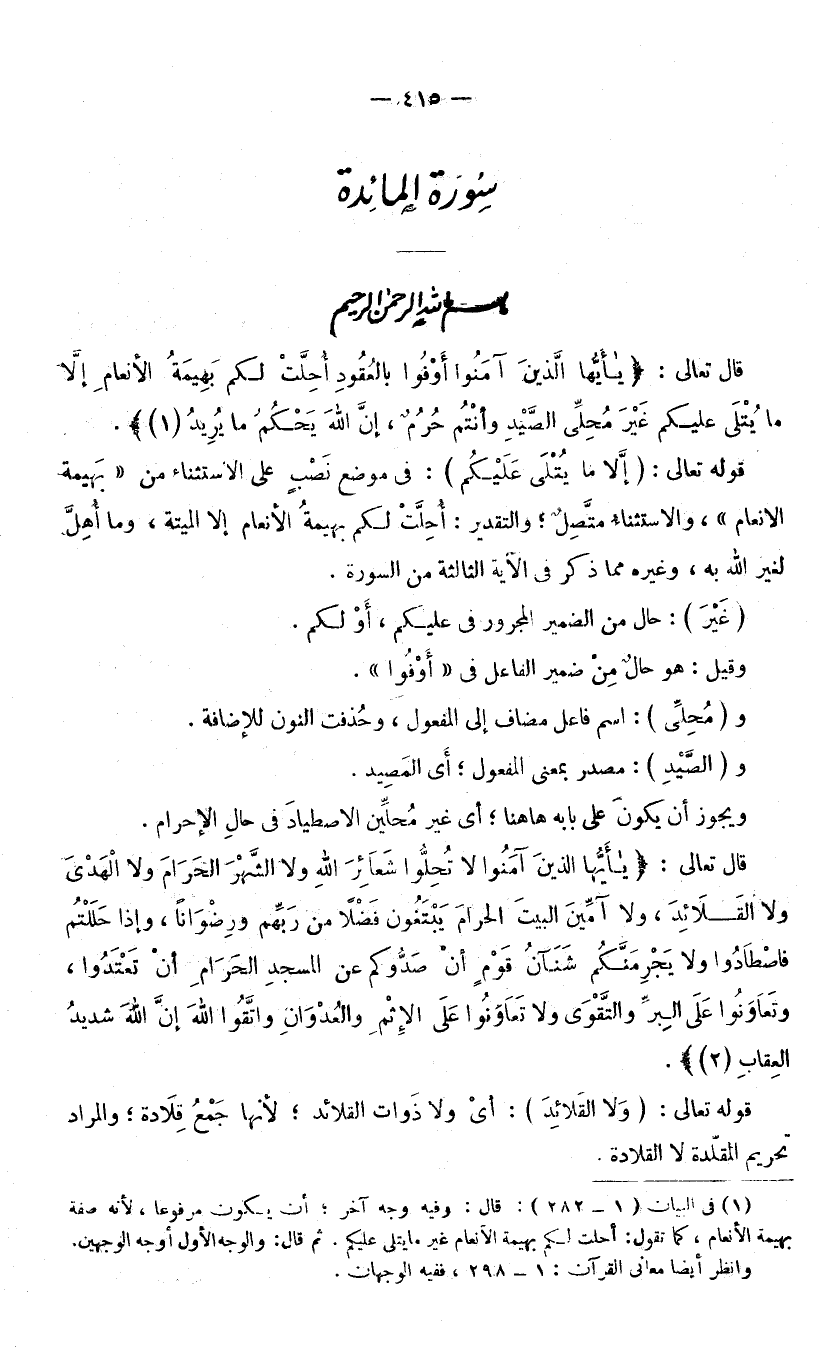 — ٤١٥ —
سُورَة المائِدة
بسم الله الرحمن الرحيم
قال تعالى : ﴿ يٰأَيُّها الَّذينَ آمَنُوا أَوْفُوا بالعُقُودِ أُحِلَّتْ لكم بَهِيمَةُ الأنعامِ إلَّا
ما يُتْلَى عليكم غَيْرَ مُحِلِّى الصَّيْدِ وأنْتُم حُرُمٌ ، إنَّ اللهَ يَحْكُمُ ما يُرِيدُ (١) ﴾ .
قوله تعالى : ( إلَّا ما يُتْلَى عَلَيْكُم ) : فى موضع نَصْبٍ على الاستثناء من « بَهِيمة
الانعام » ، والاستثناء متَّصِلٌ ؛ والتقدير : أُحِلَّتْ لكم بهيمةُ الأنعام إلا الميتة ، وما أُهِلَّ
لغير الله به ، وغيره مما ذكر فى الآية الثالثة من السورة .
( غَيْرَ ) : حال من الضمير المجرور فى عليكم ، أَوْ لكم .
وقيل : هو حالٌ مِنْ ضمير الفاعل فى « أَوْفُوا » .
و ( مُحِلِّى ) : اسم فاعل مضاف إلى المفعول ، وحُذفت النون للإضافة .
و ( الصَّيْدِ ) : مصدر بمعنى المفعول ؛ أَى المَصِيد .
ويجوز أن يكونَ على بابه هاهنا ؛ أى غير مُحلِّين الاصطيادَ فى حالِ الإحرام .
قال تعالى : ﴿ يٰأَيُّها الذينَ آمَنُوا لا تُحِلُّوا شَعَائِرَ اللهِ ولا الشَّهْرَ الحَرَامَ ولا الْهَدْىَ
ولا القَلَائِدَ ، ولا آمِّينَ البيتَ الحرامَ يَبْتَغُون فَضْلًا من رَبِّهم ورِضْوَانًا ، وإذا حَلَلْتُم
فاصْطَادُوا ولا يَجْرِمَنَّكُم شَنَآنُ قَوْمٍ أنْ صَدُّوكم عن المسجدِ الحَرَامِ أنْ تَعْتَدُوا ،
وتَعَاوَنُوا عَلَى البِرِّ والتَّقْوَى ولا تَعَاوَنُوا عَلَى الإثْمِ والعُدْوَانِ واتَّقُوا اللهَ إنَّ اللهَ شديدُ
العِقابِ (٢) ﴾ .
قوله تعالى : ( وَلَا القَلائِدَ ) : أىْ ولا ذَوات القلائد ؛ لأنها جَمْعُ قِلَادة ؛ والمراد
تحريم المقلّدة لا القلادة .
(١) فى البيان ( ١ - ٢٨٢ ) : قال : وفيه وجه آخر ؛ أن يكون مرفوعا ، لأنه صفة
بهيمة الأنعام ، كما تقول: أحلت لكم بهيمة الأنعام غير مايتلى عليكم . ثم قال: والوجه الأول أوجه الوجهين.
وانظر أيضا معانى القرآن : ١ - ٢٩٨ ، ففيه الوجهان .